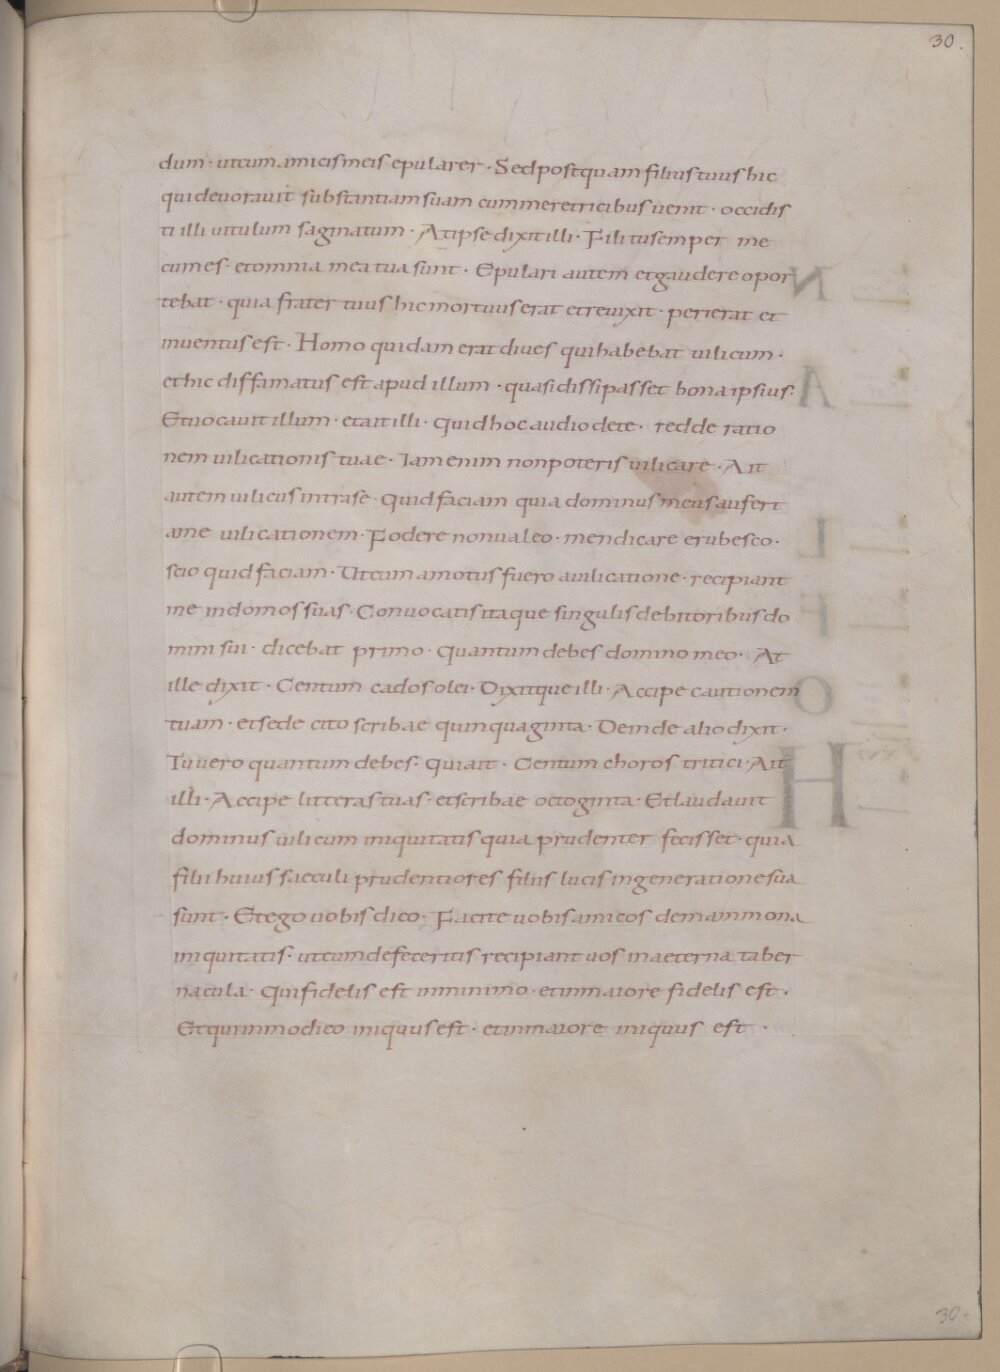 30.
dum · utcum amicis meis epularer · Sed postquam filius tuus hic
qui devoravit substantiam suam cum meretricibus venit · occidis
ti illi vitulum saginatum · At ipse dixit illi · Fili tu semper me
cum es · et omnia mea tua sunt · Epulari autem et gaudere opor
tebat · quia frater tuus hic mortuus erat et revixit · perierat et
inventus est · Homo quidam erat dives qui habebat vilicum ·
et hic diffamatus est apud illum · quasi dissipasset bona ipsius ·
Et vocavit illum · et ait illi · Quid hoc audio de te · redde ratio
nem vilicationis tuae · Iam enim non poteris vilicare · Ait
autem vilicus intra se · Quid faciam quia dominus meus aufert
a me vilicationem · Fodere non valeo · mendicare erubesco ·
scio quid faciam · Ut cum amotus fuero a vilicatione · recipiant
me in domos suas · Convocatis itaque singulis debitoribus do
mini sui · dicebat primo · Quantum debes domino meo · At
ille dixit · Centum cados olei · Dixitque illi · Accipe cautionem
tuam · et sede cito scribae quinquaginta · Deinde alio dixit ·
Tu vero quantum debes · Qui ait · Centum choros tritici · Ait
illi · Accipe litteras tuas · et scribae octoginta · Et laudavit
dominus vilicum iniquitatis quia prudenter fecisset · quia
filii huius saeculi prudentiores filiis lucis in generatione sua
sunt · Et ego vobis dico · Facite vobis amicos de mammona
iniquitatis · ut cum defeceritis recipiant vos in aeterna taber
nacula · Qui fidelis est in minimo · et in maiore fidelis est ·
Et qui in modico iniquus est · et in maiore iniquus est ·
30.